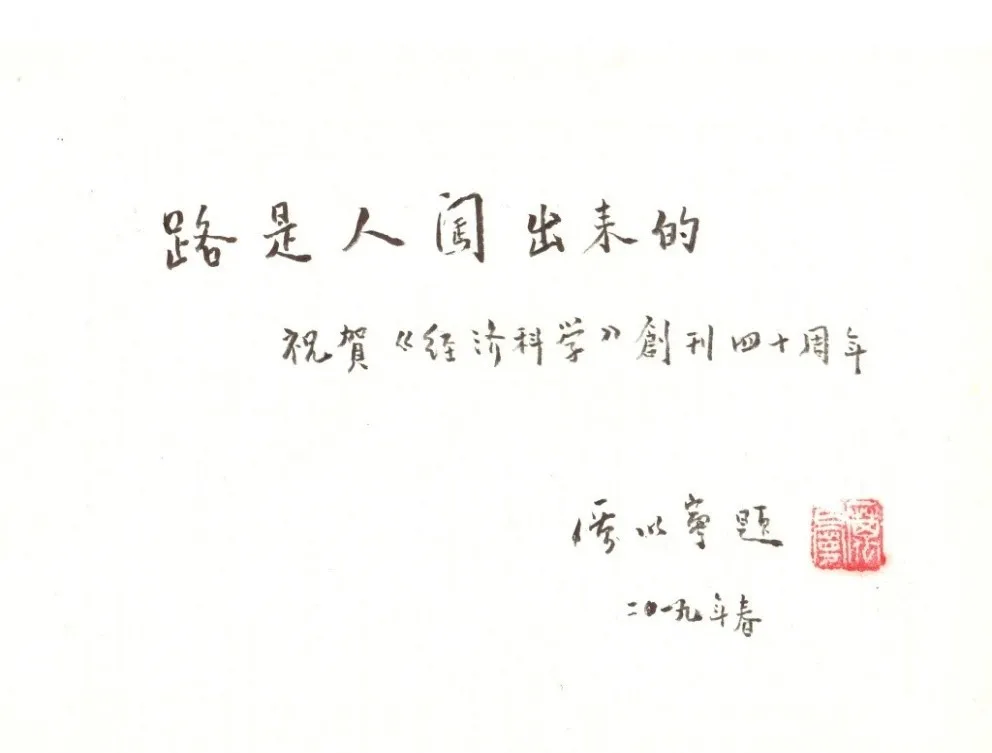 路是人闯出来的
祝賀《经济科学》創刊四十周年
厲以寧题
二〇一九年春